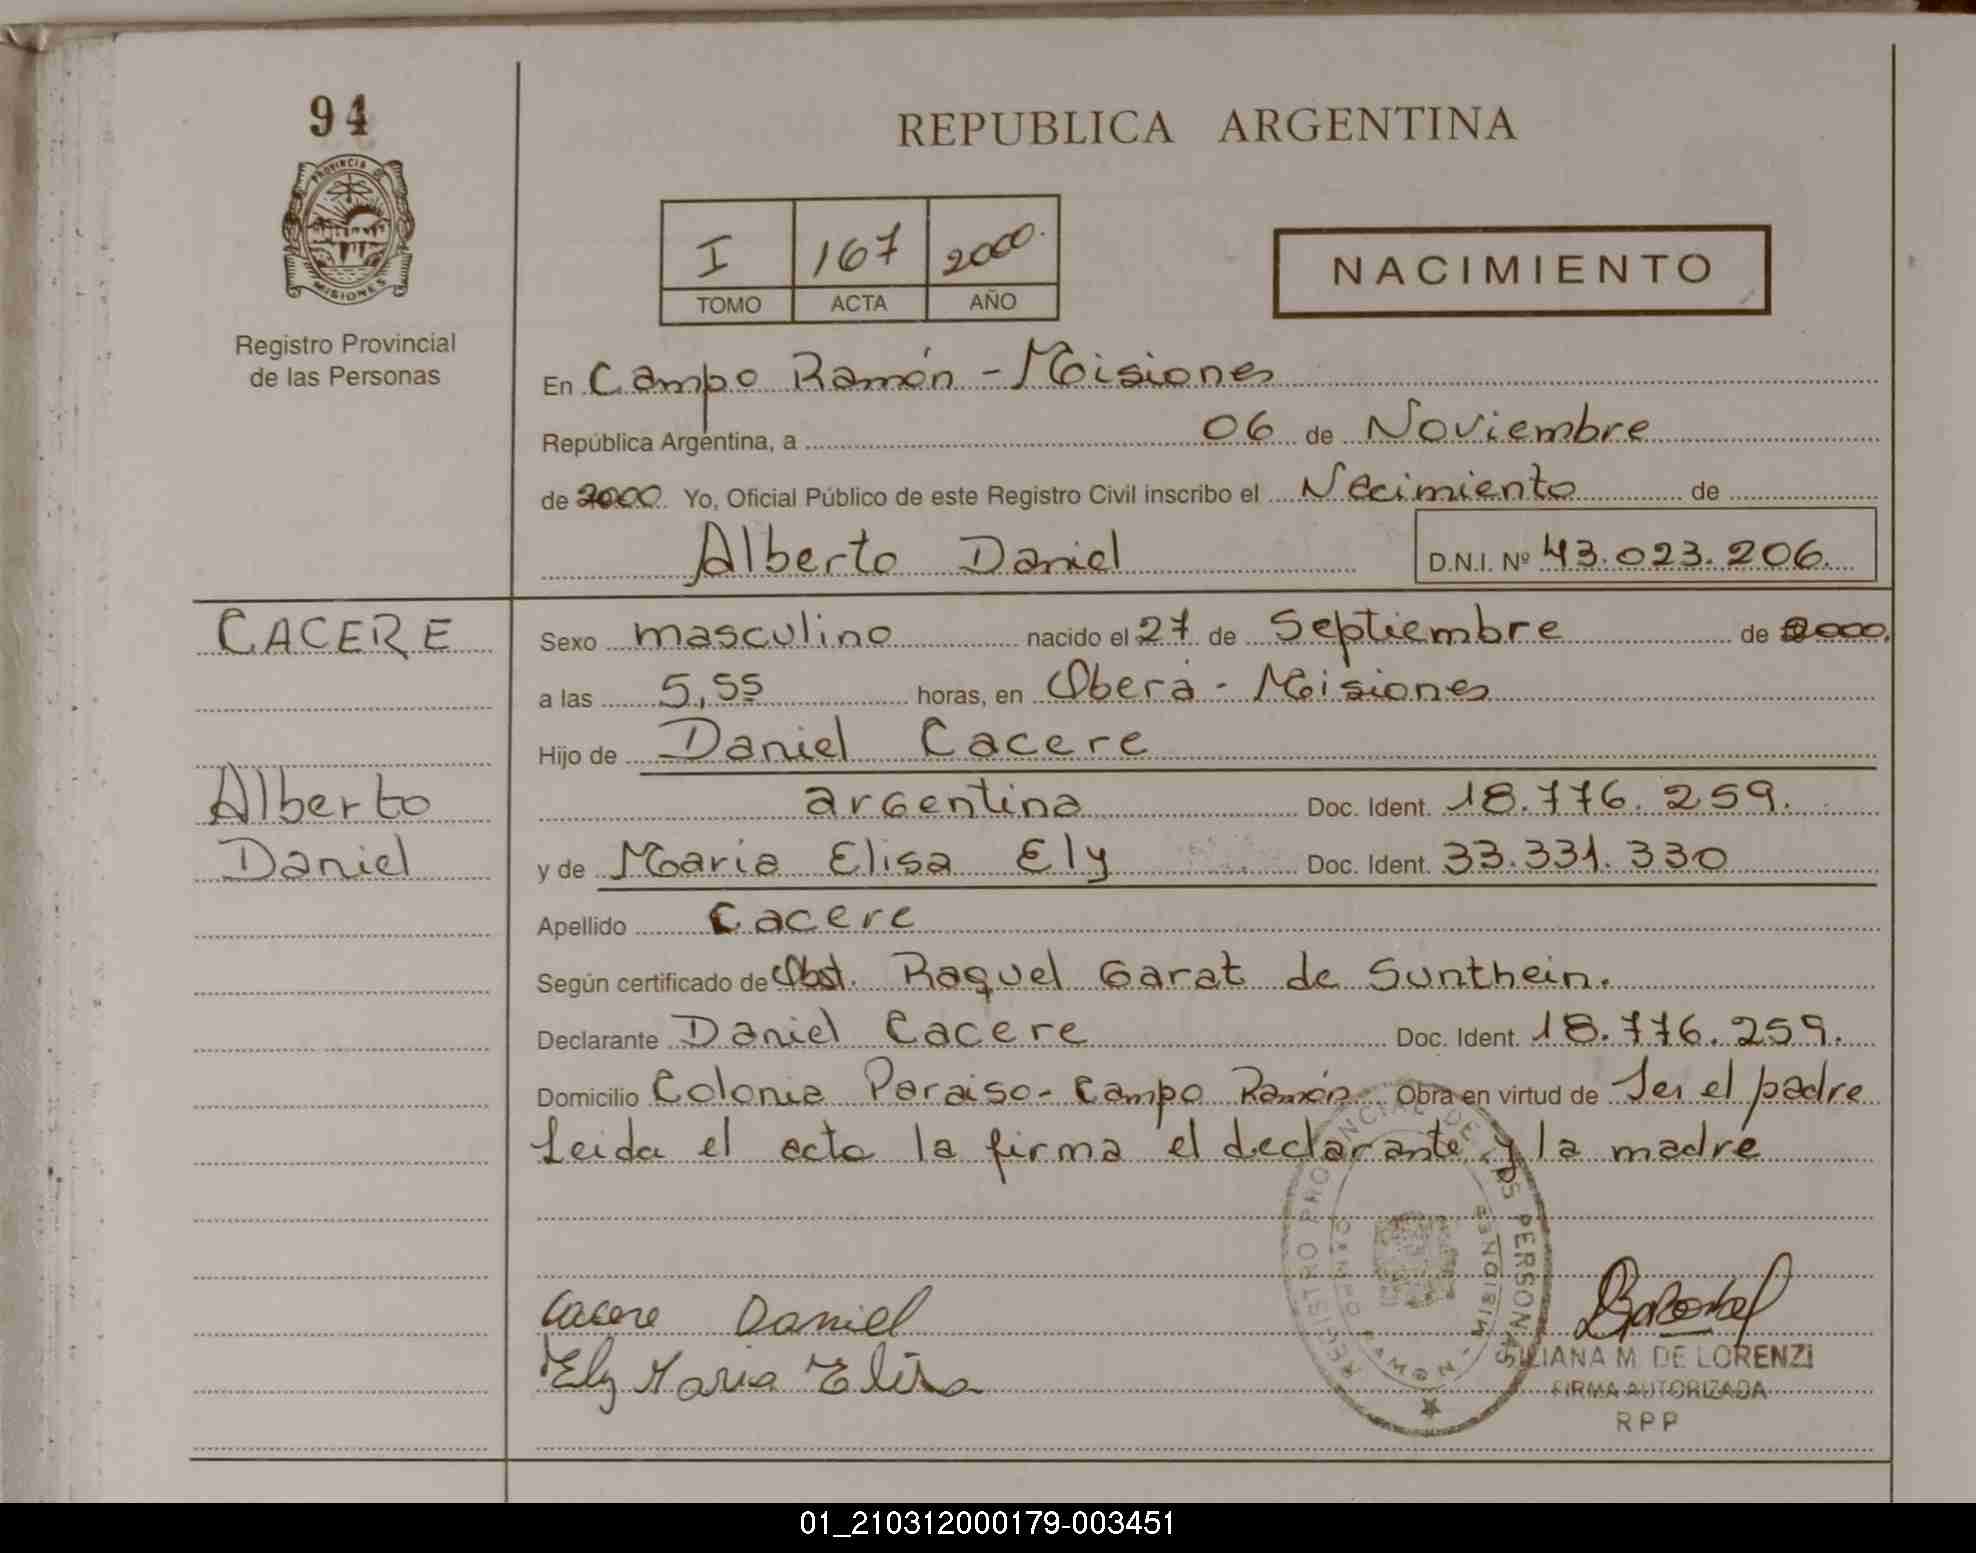 94
REPUBLICA ARGENTINA
PROVINCIA DE
MISIONES
Registro Provincial
de las Personas
I 167 2000.
TOMO ACTA AÑO
NACIMIENTO
En Campo Ramón - Misiones
República Argentina, a 06 de Noviembre
de 2000. Yo, Oficial Público de este Registro Civil inscribo el Nacimiento de
Alberto Daniel D.N.I. Nº 43.023.206.
CACERE
Alberto
Daniel
Sexo masculino nacido el 27 de Septiembre de 2000.
a las 5,55 horas, en Oberá - Misiones
Hijo de Daniel Cacere
argentina Doc. Ident. 18.776.259.
y de Maria Elisa Ely Doc. Ident. 33.331.330
Apellido Cacere
Según certificado de Obst. Raquel Garat de Sunthein.
Declarante Daniel Cacere Doc. Ident. 18.776.259.
Domicilio Colonia Paraiso - Campo Ramón Obra en virtud de Ser el padre
Leida el acta la firma el declarante y la madre
REGISTRO PROVINCIAL DE LAS PERSONAS
MISIONES
Cacere Daniel
Ely Maria Elisa
SILIANA M. DE LORENZI
FIRMA AUTORIZADA
RPP
01_210312000179-003451